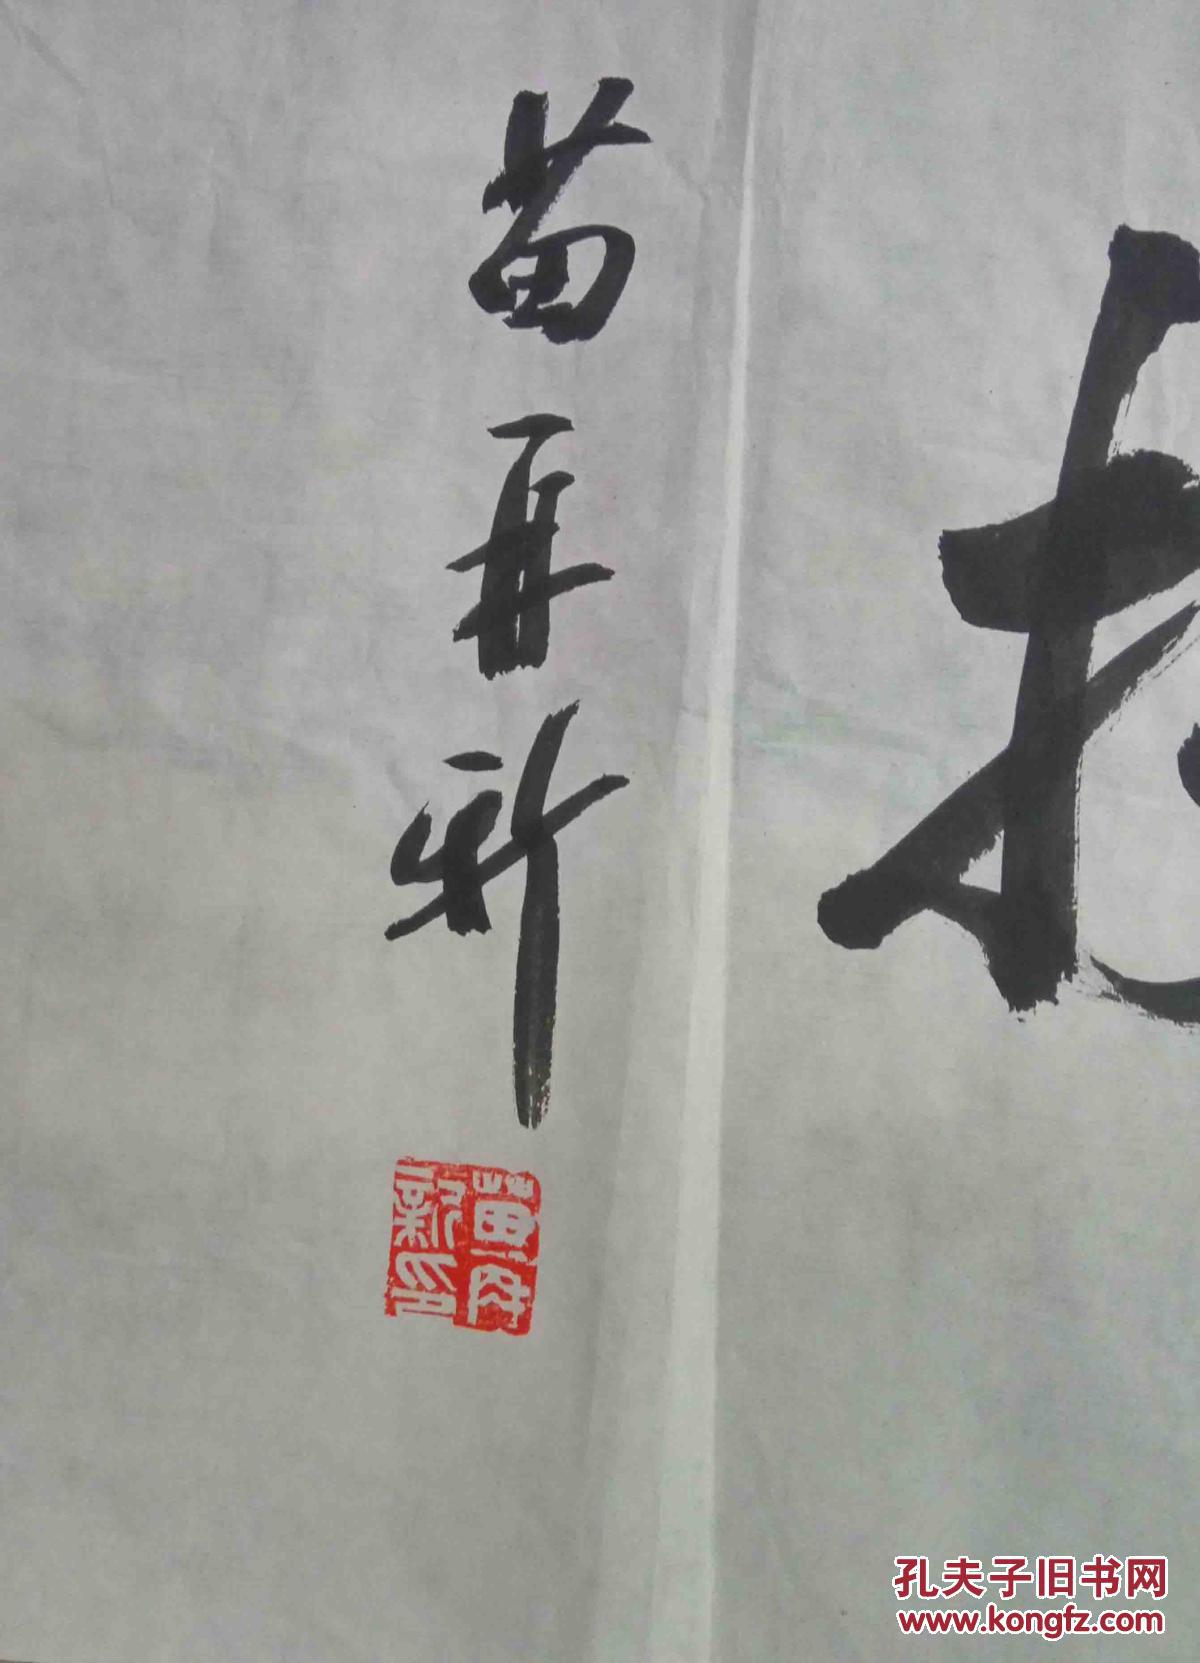 苗再新
苗再新印
孔夫子旧书网
www.kongfz.com